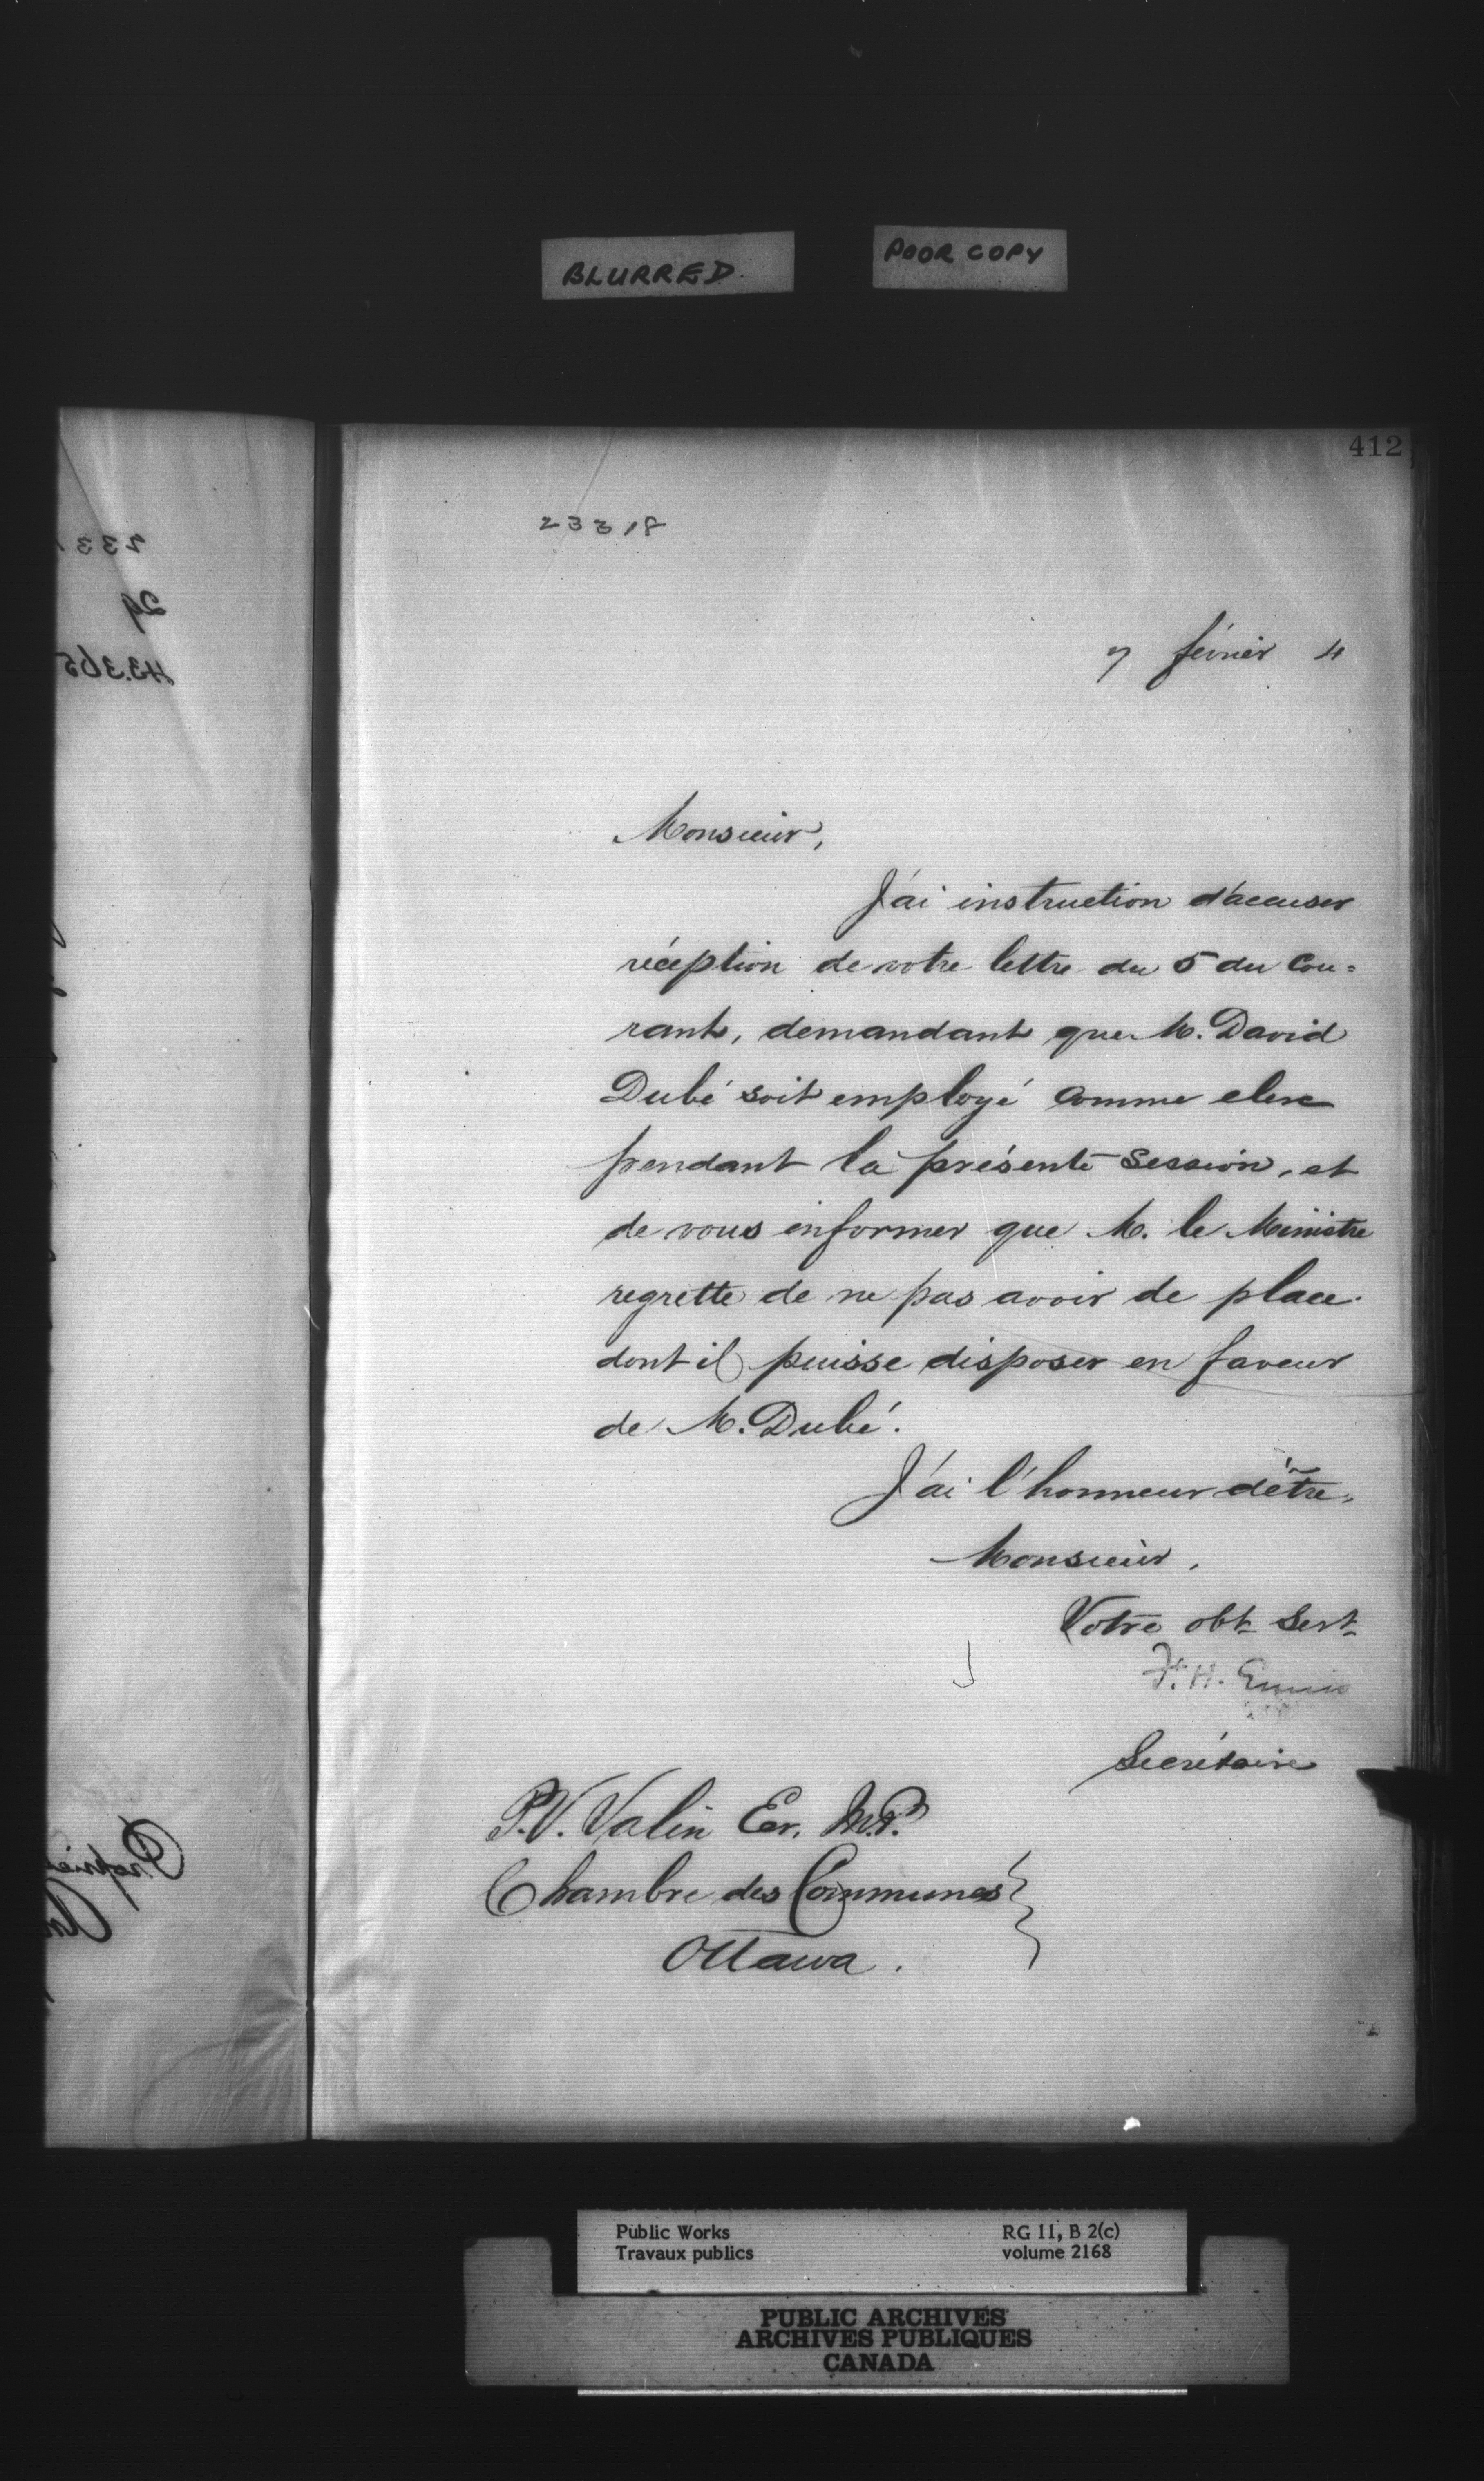 BLURRED.
POOR COPY
412
23318
7 février 4
Monsieur,
J'ai instruction d'accuser
réception de votre lettre du 5 du Cou=
rant, demandant que M. David
Dubé soit employé comme clerc
pendant la présente Session, et
de vous informer que M. le Ministre
regrette de ne pas avoir de place
dont il puisse disposer en faveur
de M. Dubé.
J'ai l'honneur d'être,
Monsieur,
Votre obt Sert
F. H. Ennis
Secrétaire
P.V. Valin Ecr. M.P.
Chambre des Communes
Ottawa.
233
29
43365
Public Works
Travaux publics
RG 11, B 2(c)
volume 2168
PUBLIC ARCHIVES
ARCHIVES PUBLIQUES
CANADA